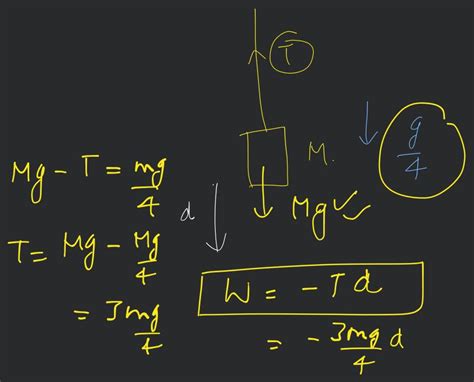 T
M.
g/4
Mg ✓✓
d
Mg - T = mg/4
T = Mg - Mg/4
= 3mg/4
W = -Td
= -3mg/4 d